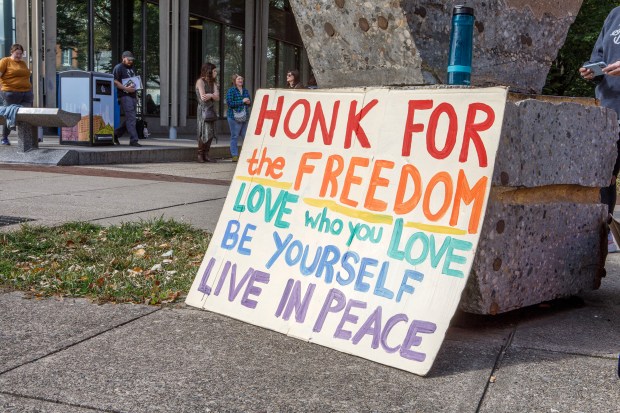 HONK FOR
the FREEDOM
LOVE who you LOVE
BE YOURSELF
LIVE IN PEACE